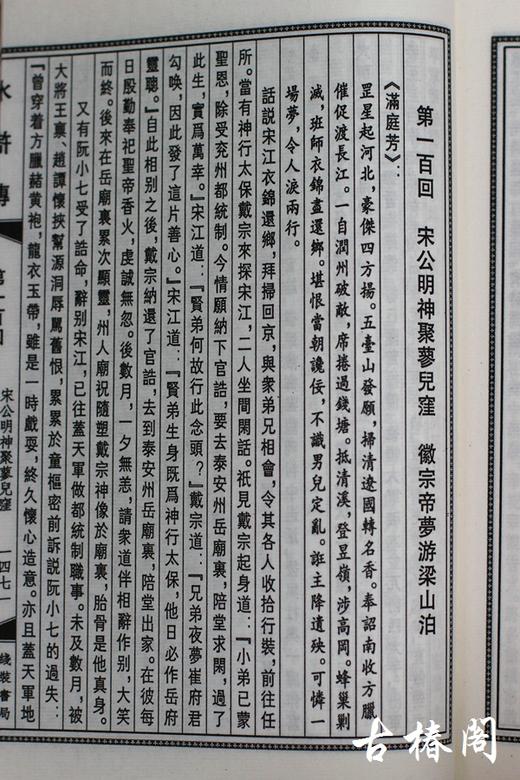 第一百回　宋公明神聚蓼兒窪　徽宗帝夢游梁山泊
《滿庭芳》：
罡星起河北，豪傑四方揚。五臺山發願，掃清遼國轉名香。奉詔南收方臘，
催促渡長江。一自潤州破敵，席捲過錢塘。抵清溪，登昱嶺，涉高岡。蜂巢剿
滅，班師衣錦盡還鄉。堪恨當朝讒佞，不識男兒定亂。誑主降遺殃。可憐一
場夢，令人淚兩行。
話説宋江衣錦還鄉，拜掃回京，與衆弟兄相會，令其各人收拾行裝，前往任
所。當有神行太保戴宗來探宋江，二人坐間閑話。祇見戴宗起身道：『小弟已蒙
聖恩，除受兖州都統制。今情願納下官誥，要去泰安州岳廟裏，陪堂求閑，過了
此生，實爲萬幸。』宋江道：『賢弟何故行此念頭？』戴宗道：『兄弟夜夢崔府君
勾唤，因此發了這片善心。』宋江道：『賢弟生身既爲神行太保，他日必作岳府
靈聰。』自此相别之後，戴宗納還了官誥，去到泰安州岳廟裏，陪堂出家。在彼每
日殷勤奉祀聖帝香火，虔誠無忽。後數月，一夕無恙，請衆道伴相辭作别，大笑
而終。後來在岳廟裏累次顯靈，州人廟祝隨塑戴宗神像於廟裏，胎骨是他真身。
又有阮小七受了誥命，辭别宋江，已往蓋天軍做都統制職事。未及數月，被
大將王禀、趙譚懷挾幫源洞辱駡舊恨，累累於童樞密前訴説阮小七的過失：
『曾穿着方臘赭黄袍，龍衣玉帶，雖是一時戲耍，終久懷心造意。亦且蓋天軍地
水滸傳
宋公明神聚蓼兒窪
一四七一
綫裝書局
古椿閣